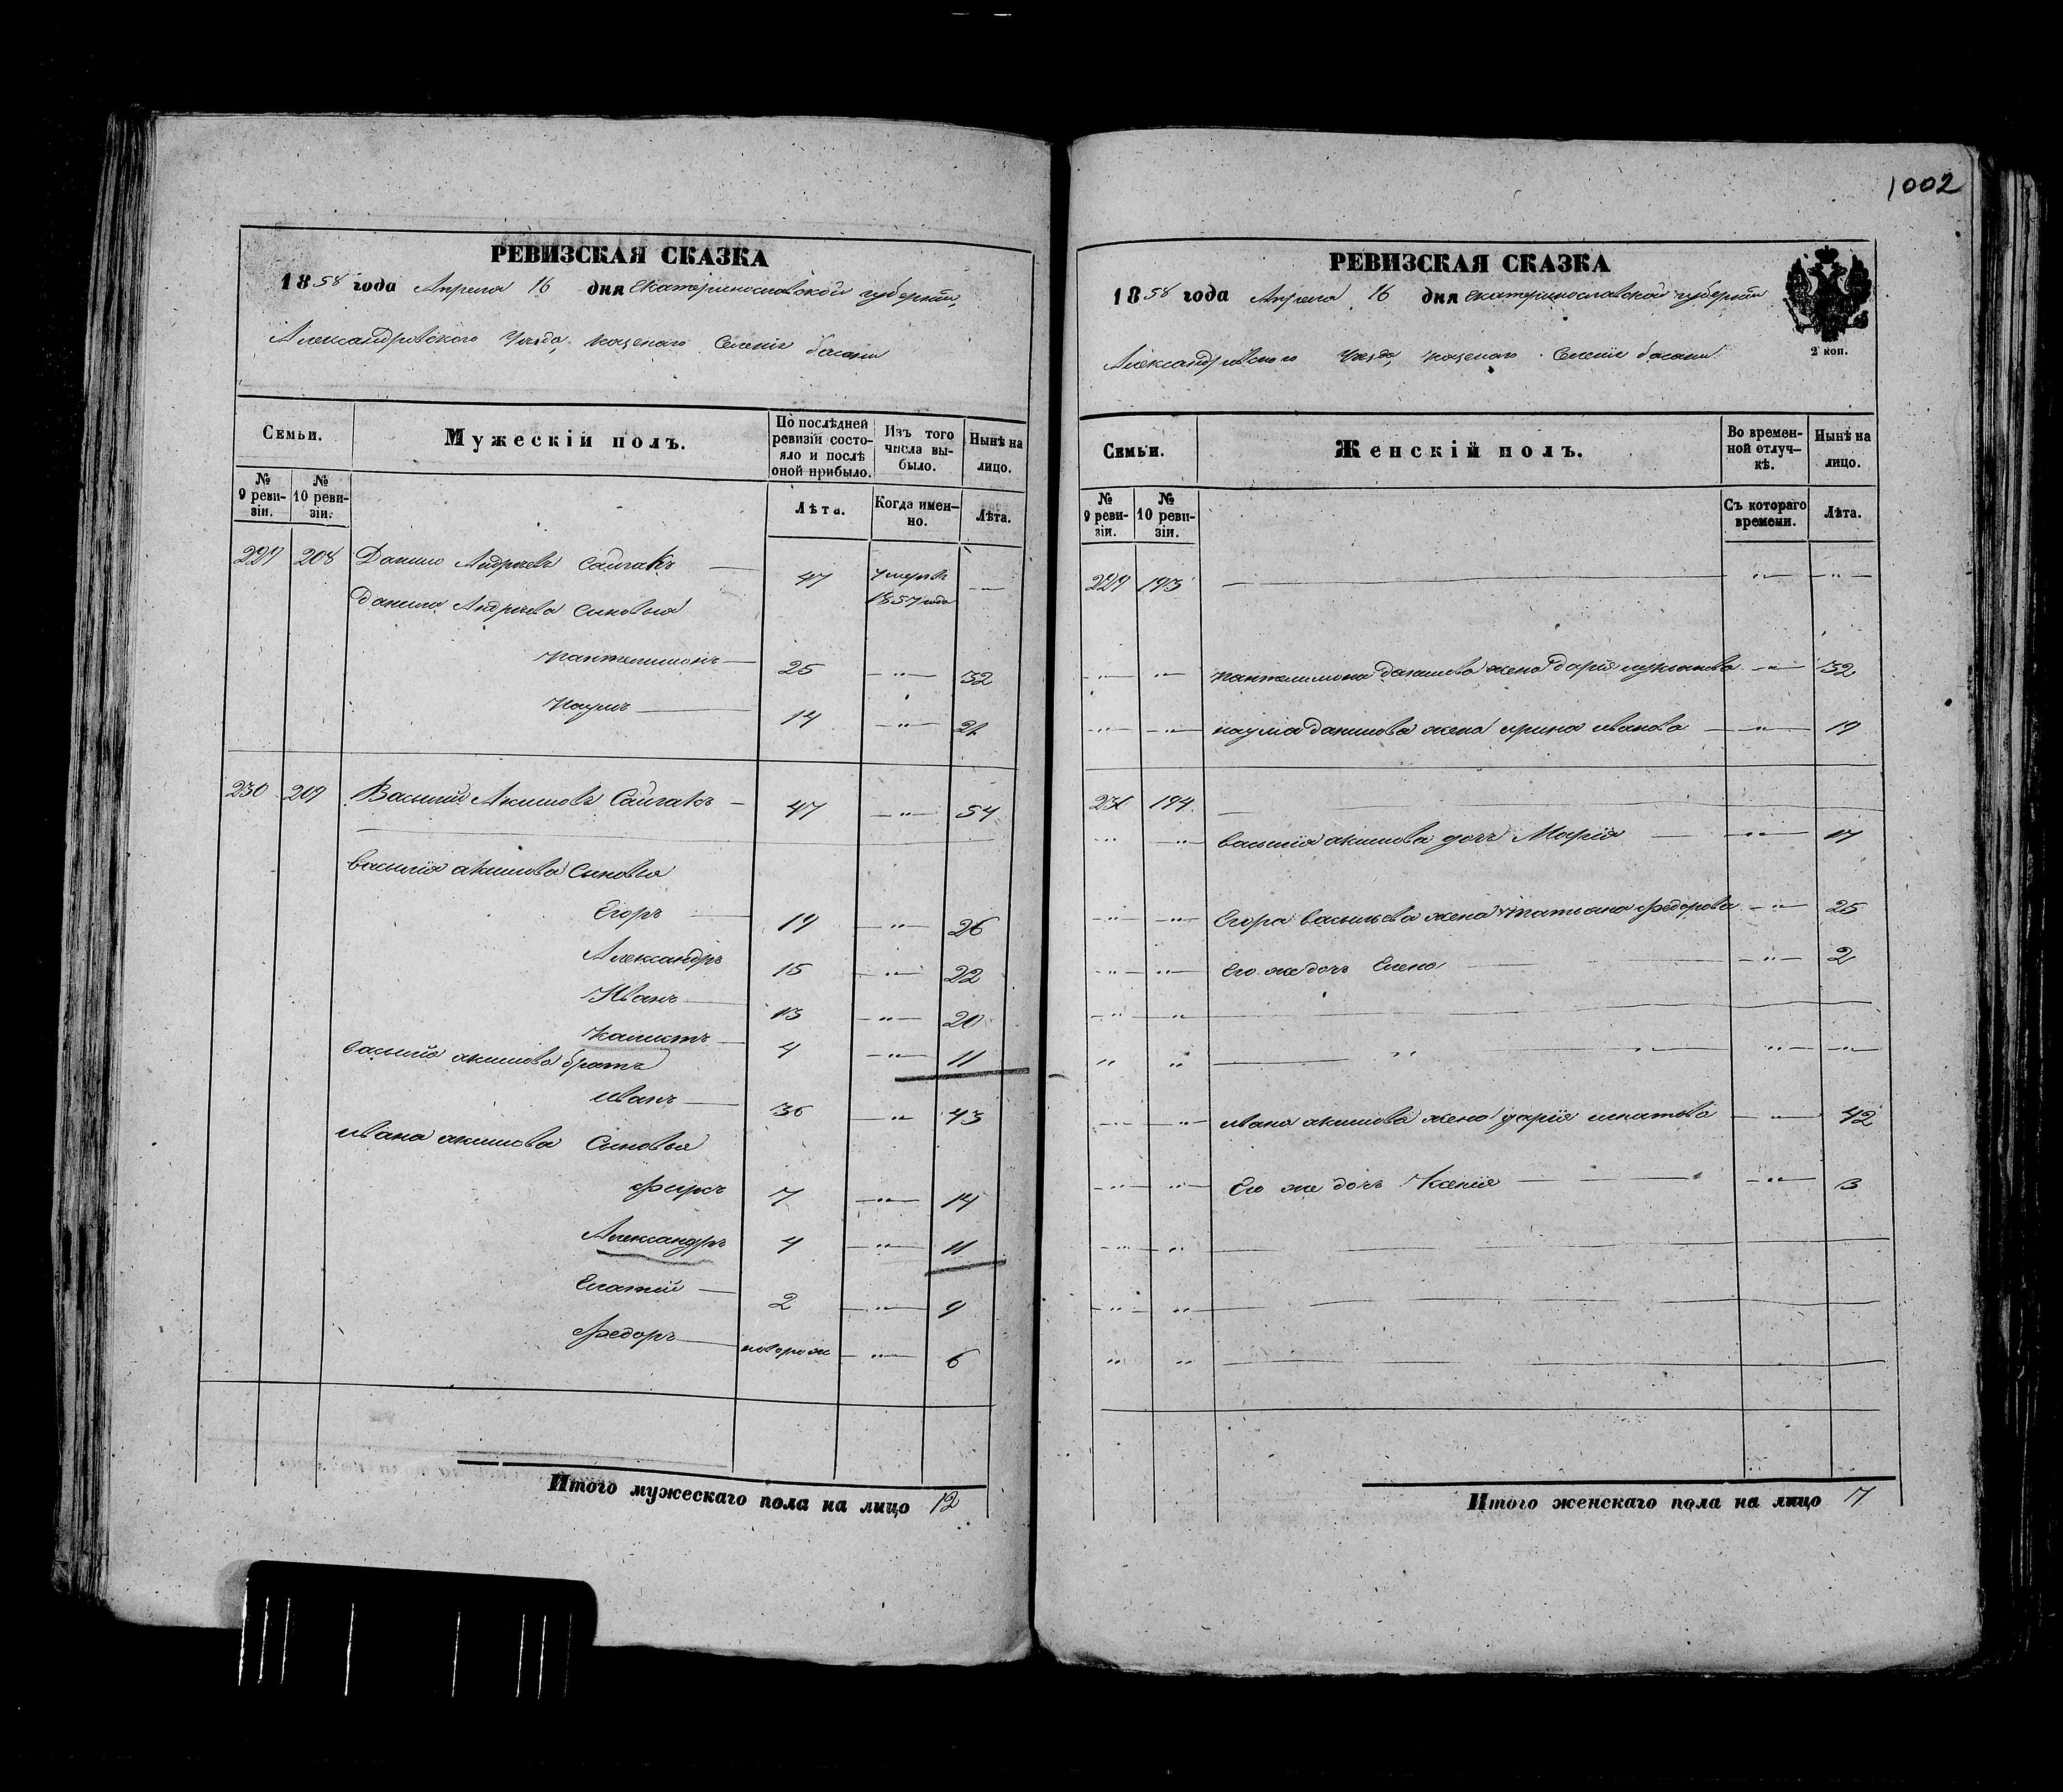 1002
РЕВИЗСКАЯ СКАЗКА
1858 года Апреля 16 дня Екатеринославской губернии,
Александровского Уезда, Селение басани
Семьи. Мужескій полъ. По послѣдней ревизіи состояло и послѣ оной прибыло. Изъ того числа выбыло. Нынѣ на лицо.
№ 9 ревизіи. № 10 ревизіи. Лѣта. Когда именно. Лѣта.
229 208 Данило Андреевъ Сайгакъ 47 умеръ 1857 года
Данила Андреева Сыновья
Пантелимонъ 25 32
Наумъ 14 21
230 209 Василий Акимовъ Сайгакъ 47 54
василия акимова Сыновья
Егоръ 19 26
Александръ 15 22
Иванъ 13 20
Калистъ 4 11
василия акимова братъ
Иванъ 36 43
ивана акимова Сыновья
Фирсъ 7 14
Александръ 4 11
2 9
Федоръ новорож 6
Итого мужескаго пола на лицо 12
РЕВИЗСКАЯ СКАЗКА
1858 года Апреля 16 дня Екатеринославской губернии
Александровского Уезда, Селение басани
2 коп.
Семьи. Женскій полъ. Во временной отлучкѣ. Нынѣ на лицо.
№ 9 ревизіи. № 10 ревизіи. Съ котораго времени. Лѣта.
229 193
Пантелимона данилова жена Дария 32
наума данилова жена ирина иванова 19
231 194
василия акимова дочь Мария 17
Егора васильева жена татиана федорова 25
Его же дочь Елена 2
ивана акимова жена дария игнатова 42
Его же дочь Ксения 3
Итого женскаго пола на лицо 7